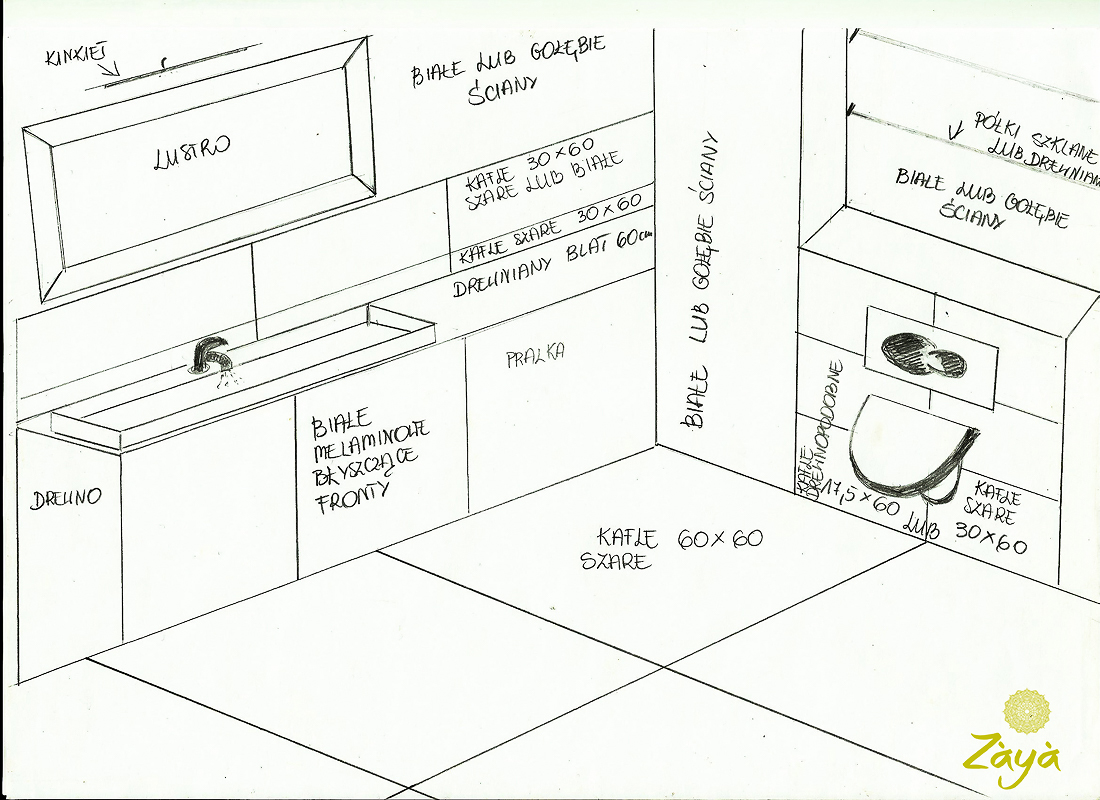 KINKIET
LUSTRO
BIAŁE LUB GOŁĘBIE
ŚCIANY
KAFLE 30×60
SZARE LUB BIAŁE
KAFLE SZARE 30×60
DREWNIANY BLAT 60cm
PRALKA
BIAŁE
MELAMINOWE
BŁYSZCZĄCE
FRONTY
DREWNO
BIAŁE LUB GOŁĘBIE ŚCIANY
PÓŁKI SZKLANE
LUB DREWNIANE
BIAŁE LUB GOŁĘBIE
ŚCIANY
KAFLE
DREWNOPODOBNE
17,5×60 LUB
KAFLE
SZARE
30×60
KAFLE 60×60
SZARE
Zàyà